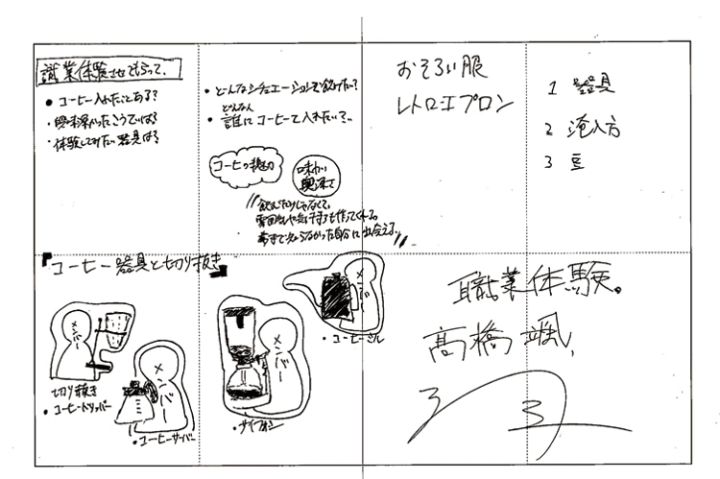 職業体験させてもらって、
・コーヒー入れたことある?
・興味深かったこうていは?
・体験してみたい器具は?
・どんなシチュエーションで飲みたい?
どんな人
・誰にコーヒーて入れたい?
コーヒーの魅力
味わい
奥深さ
飲むだけじゃなくて、
雰囲気や気持ちも作ってくれる。
今まで知らなかった自分に出会える。
おそろい服
レトロエプロン
1 器具
2 淹入方
3 豆
『コーヒー器具と切り抜き』
メンバー
切り抜き
・コーヒードリッパー
メンバー
・コーヒーサーバー
メンバー
・サイフォン
メンバー
・コーヒーミル
職業体験。
髙橋颯
3
3